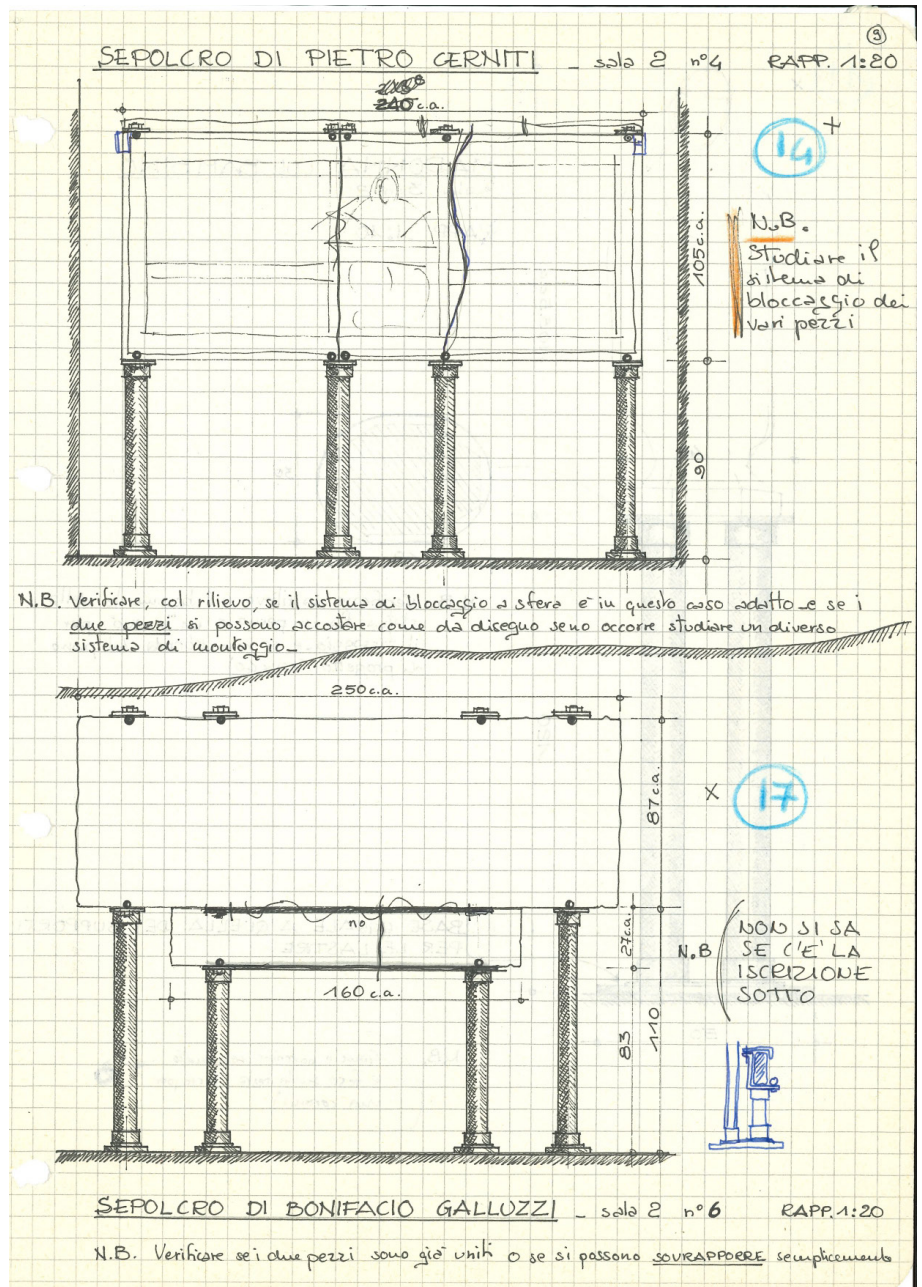 9
SEPOLCRO DI PIETRO CERNITI - sala 2 n°4 RAPP. 1:20
240 c.a.
14 +
105 c.a.
N.B.
Studiare il
sistema di
bloccaggio dei
vari pezzi
90
N.B. Verificare, col rilievo, se il sistema di bloccaggio a sfera è in questo caso adatto - e se i
due pezzi si possono accostare come da disegno seno occorre studiare un diverso
sistema di montaggio -
250 c.a.
87 c.a.
X 17
no
27 c.a.
N.B NON SI SA
SE C'E' LA
ISCRIZIONE
SOTTO
160 c.a.
83
110
SEPOLCRO DI BONIFACIO GALLUZZI - sala 2 n° 6 RAPP. 1:20
N.B. Verificare se i due pezzi sono già uniti o se si possono SOVRAPPORRE semplicemente